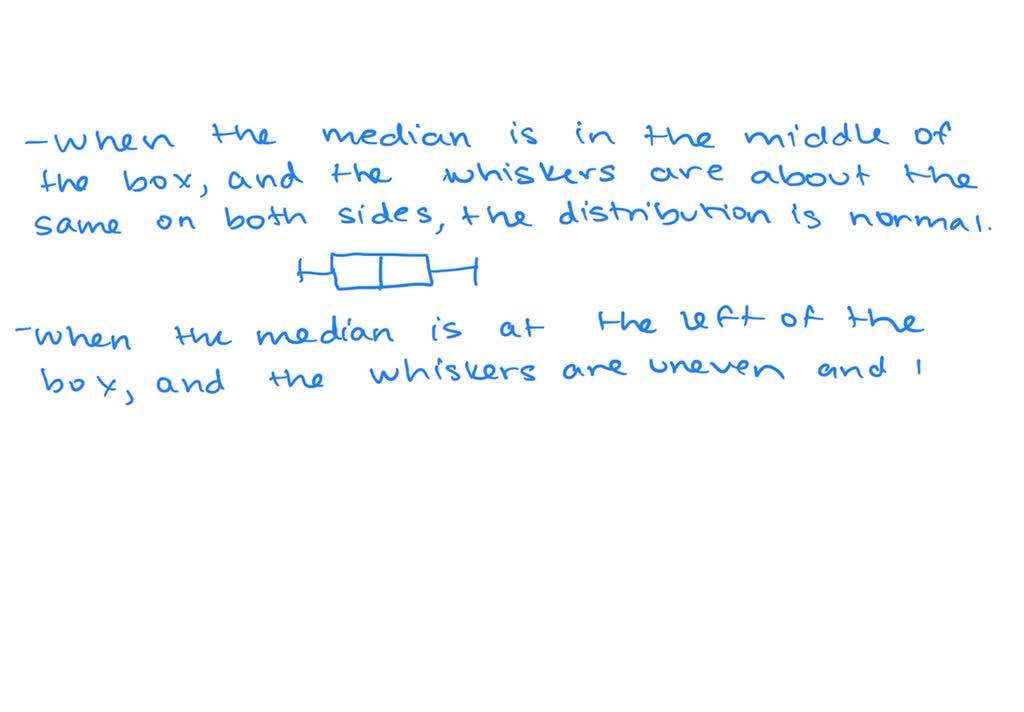 - when the median is in the middle of
the box, and the whiskers are about the
same on both sides, the distribution is normal.
- when the median is at the left of the
box, and the whiskers are uneven and